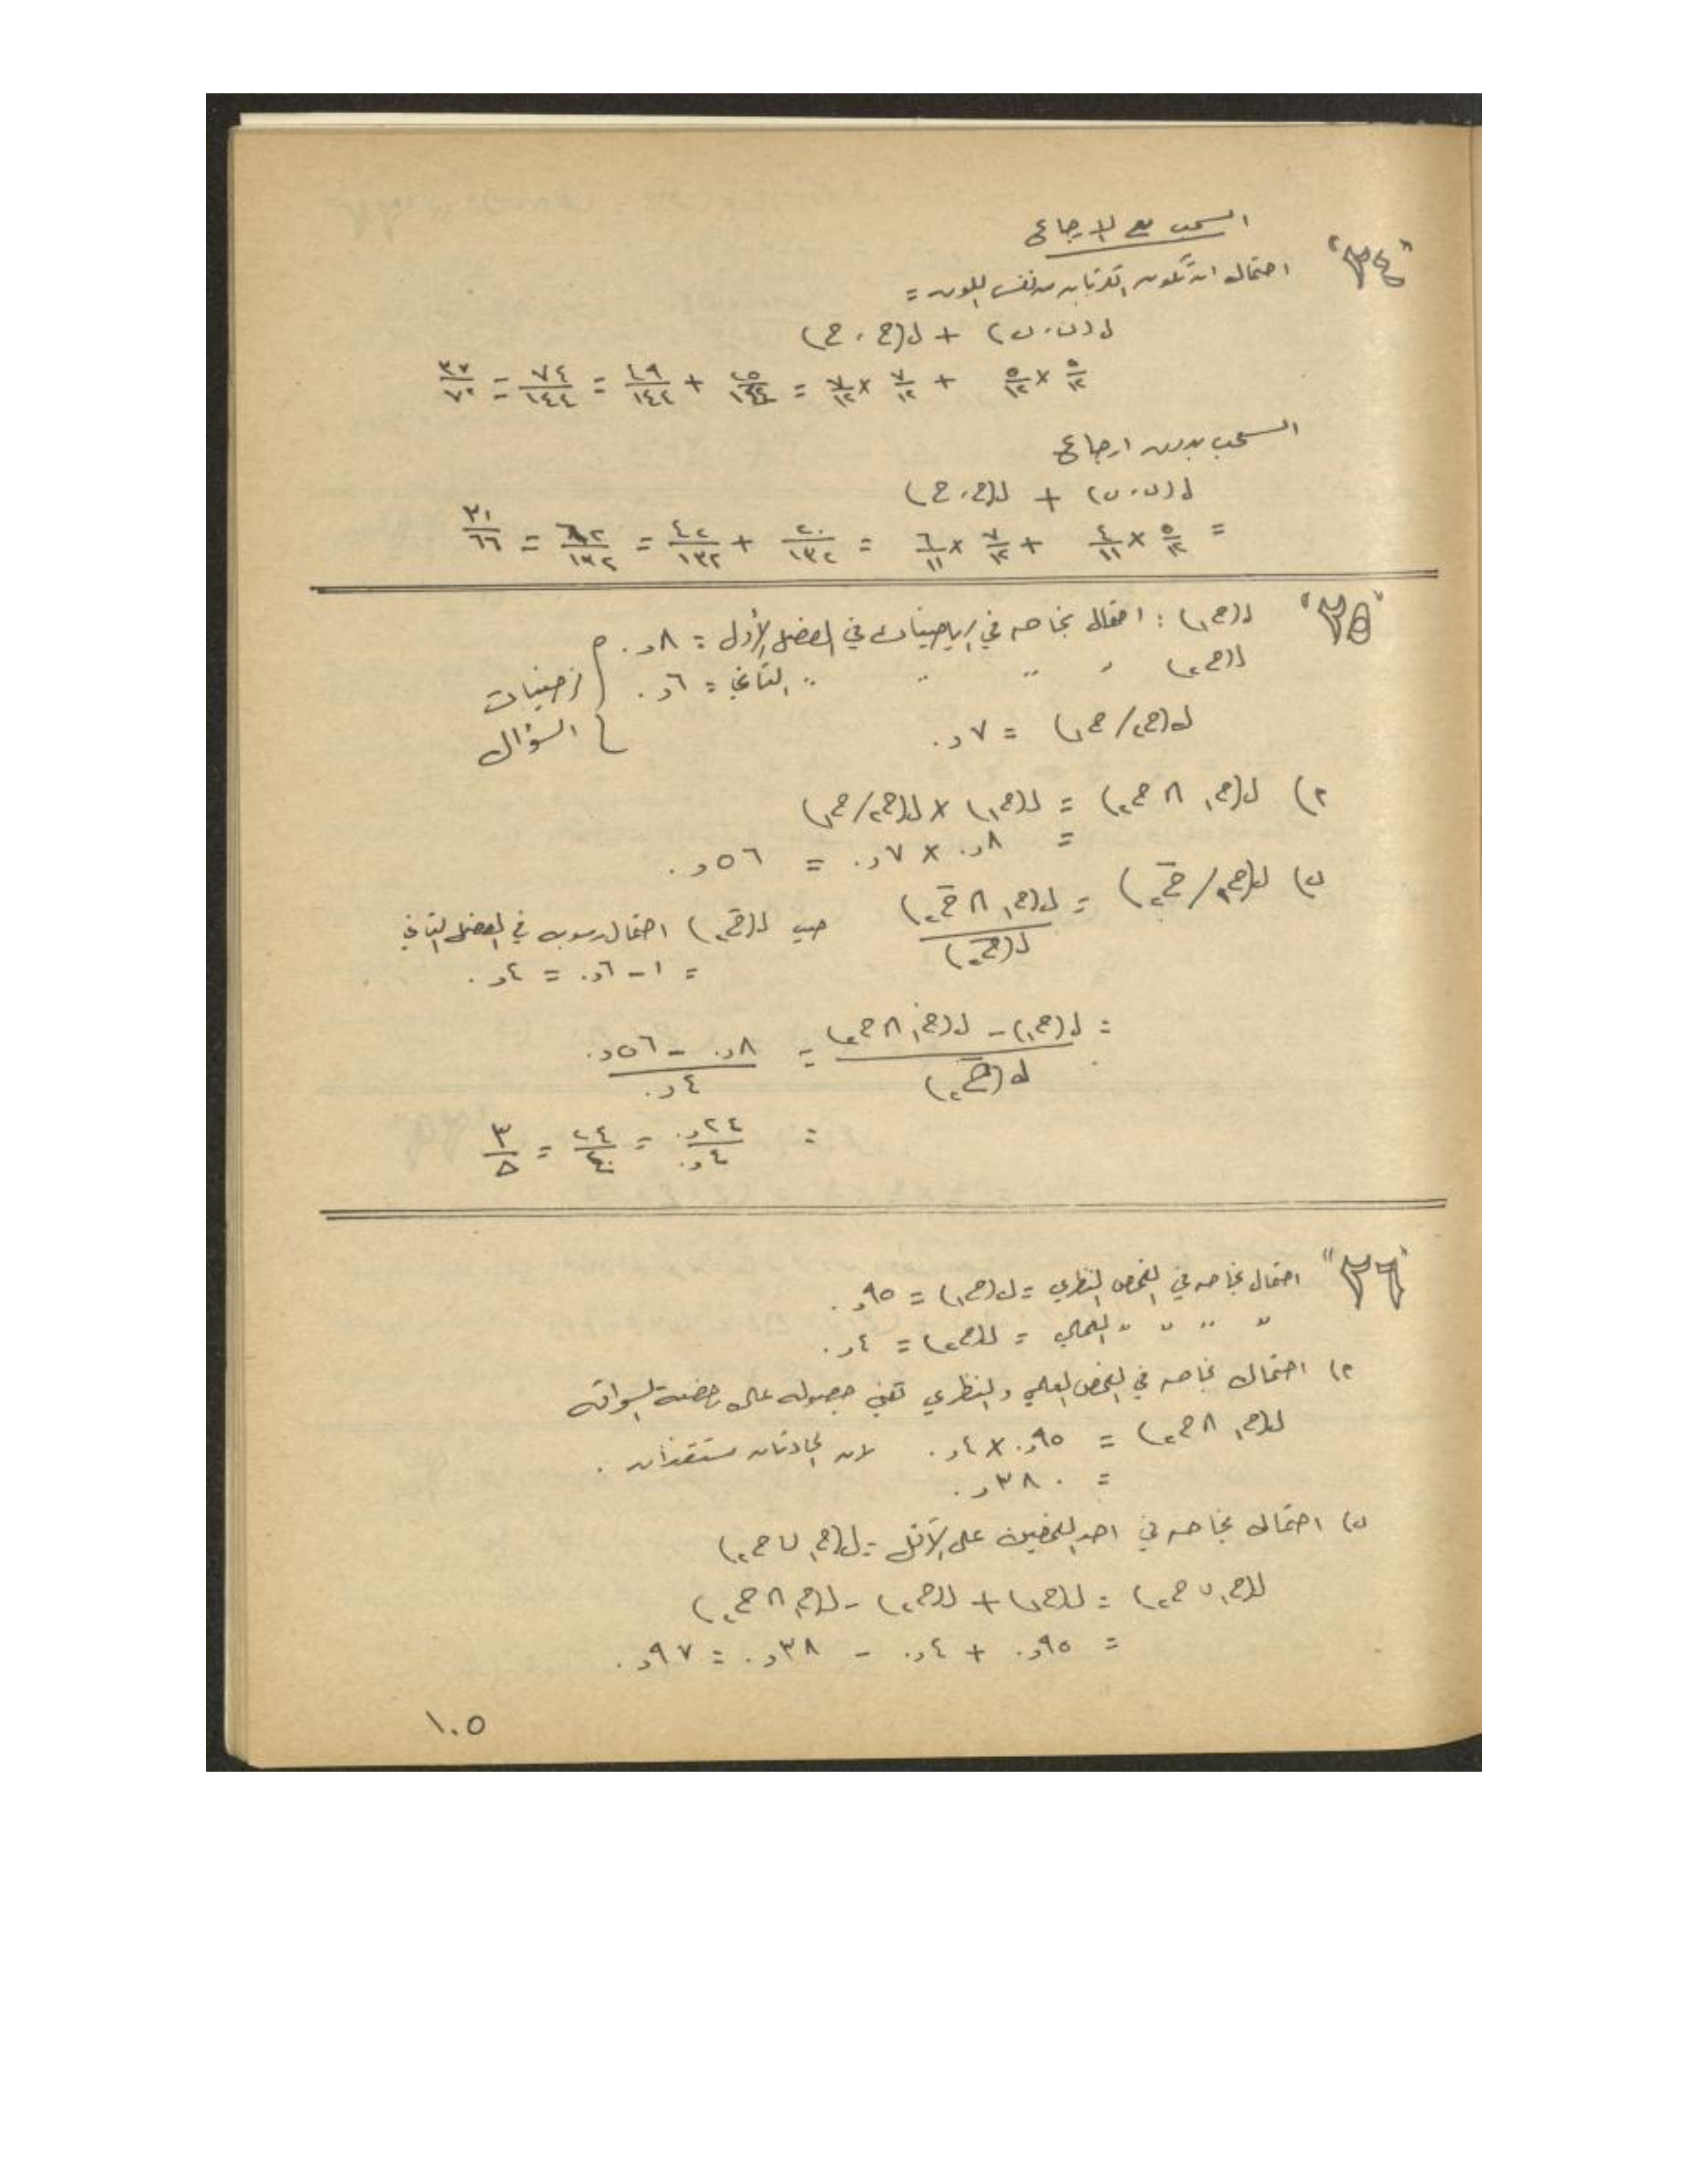 "٢٤" السحب مع الارجاع
احتمال ان تكون الكرتان من نفس اللون =
ل(ں، ں) + ل(ح، ح)
٥/١٢ × ٥/١٢ + ٧/١٢ × ٧/١٢ = ٢٥/١٤٤ + ٤٩/١٤٤ = ٧٤/١٤٤ = ٣٧/٧٢
السحب بدون ارجاع
ل(ں، ں) + ل(ح، ح)
= ٥/١٢ × ٤/١١ + ٧/١٢ × ٦/١١ = ٢٠/١٣٢ + ٤٢/١٣٢ = ٦٢/١٣٢ = ٣١/٦٦
"٢٥" ل(ح١) : احتمال نجاحه في الرياضيات في الفصل الأول = ٨ر٠
ل(ح٢) " " " " الثاني = ٦ر٠
ل(ح٢/ح١) = ٧ر٠
} فرضيات السؤال
٢) ل(ح١ ∩ ح٢) = ل(ح١) × ل(ح٢/ح١)
= ٨ر٠ × ٧ر٠ = ٥٦ر٠
ں) ل(ح١/ح̄٢) = ل(ح١ ∩ ح̄٢)/ل(ح̄٢) حيث ل(ح̄٢) احتمال رسوبه في الفصل الثاني
= ١ - ٦ر٠ = ٤ر٠
= ل(ح١) - ل(ح١ ∩ ح٢)/ل(ح̄٢) = ٨ر٠ - ٥٦ر٠/٤ر٠
= ٢٤ر٠/٤ر٠ = ٢٤/٤٠ = ٣/٥
"٢٦" احتمال نجاحه في الفحص النظري = ل(ح١) = ٩٥ر٠
" " " " العملي = ل(ح٢) = ٤ر٠
٢) احتمال نجاحه في الفحص العملي والنظري تعني حصوله على رخصة السواقة
ل(ح١ ∩ ح٢) = ٩٥ر٠ × ٤ر٠ لان الحادثان مستقلان .
= ٣٨٠ر٠
ں) احتمال نجاحه في احد الفحصين على الأقل = ل(ح١ ∪ ح٢)
ل(ح١ ∪ ح٢) = ل(ح١) + ل(ح٢) - ل(ح١ ∩ ح٢)
= ٩٥ر٠ + ٤ر٠ - ٣٨ر٠ = ٩٧ر٠
١٠٥